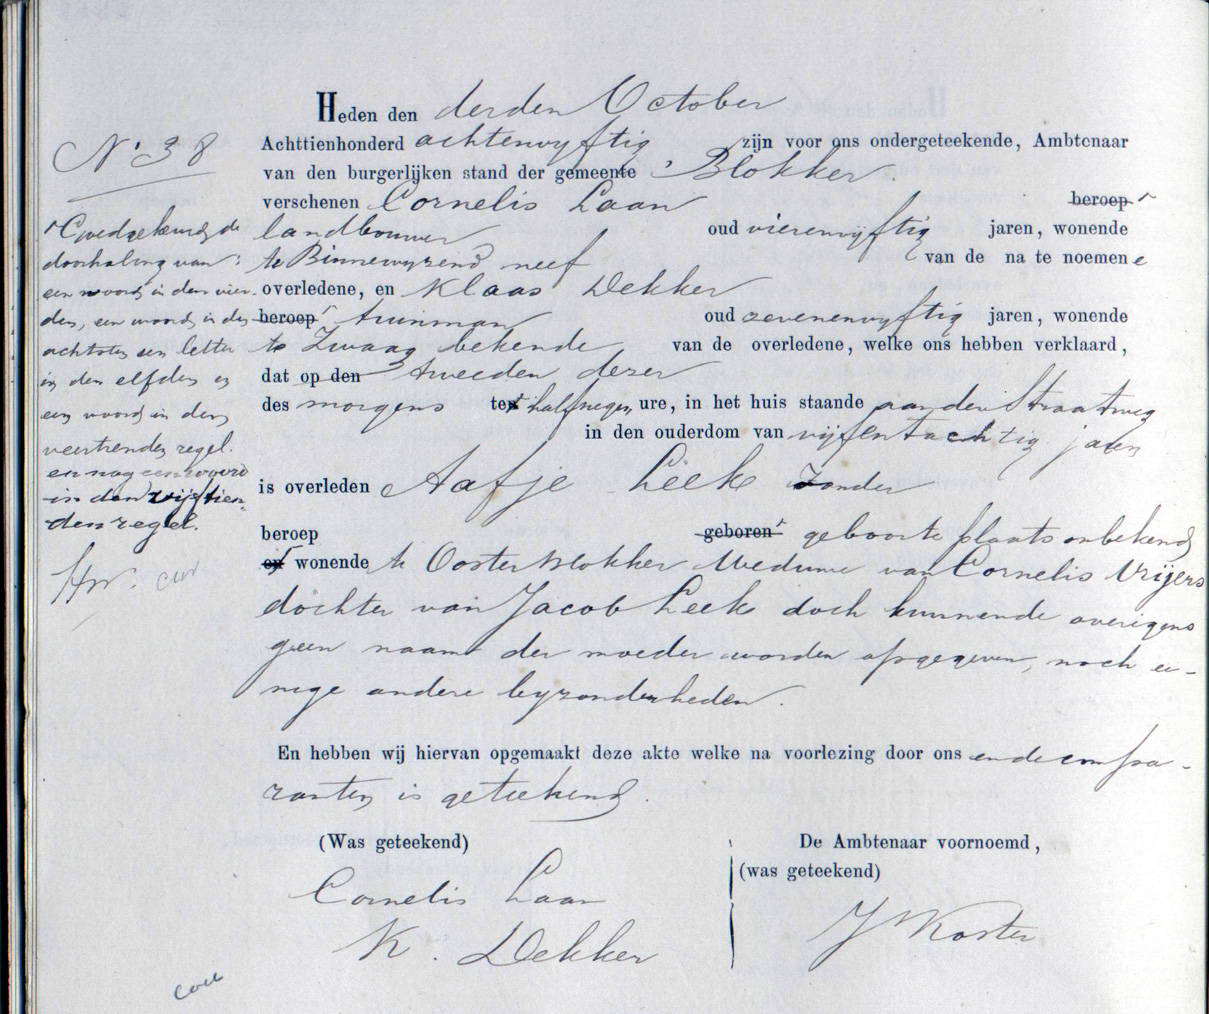 Heden den derden October
Nº 38
Achttienhonderd achtenvyftig zijn voor ons ondergeteekende, Ambtenaar
van den burgerlijken stand der gemeente Blokker
verschenen Cornelis Laan beroep
landbouwer oud vierenvyftig jaren, wonende
te Binnewyzend neef van de na te noemene
overledene, en Klaas Dekker
beroep tuinman oud zevenenvyftig jaren, wonende
te Zwaag bekende van de overledene, welke ons hebben verklaard,
dat op den tweeden dezer
des morgens ten half negen ure, in het huis staande aan den Straatweg
in den ouderdom van vijfentachtig jaren
is overleden Aafje Leek Zonder
beroep geboren geboorteplaats onbekend
en wonende te Oosterblokker Weduwe van Cornelis Vrijers
dochter van Jacob Leek doch kunnende overigens
geen naam der moeder worden opgegeven, noch ee-
nige andere byzonderheden.
Goedgekeurd de
doorhaling van
een woord in den vier-
den, een woord in den
achtsten een letter
in den elfden en
een woord in den
veertienden regel.
en nog een woord
in den vijftien-
den regel.
En hebben wij hiervan opgemaakt deze akte welke na voorlezing door ons en de compa-
ranten is geteekend.
(Was geteekend) De Ambtenaar voornoemd,
(was geteekend)
Cornelis Laan
K. Dekker J Koster